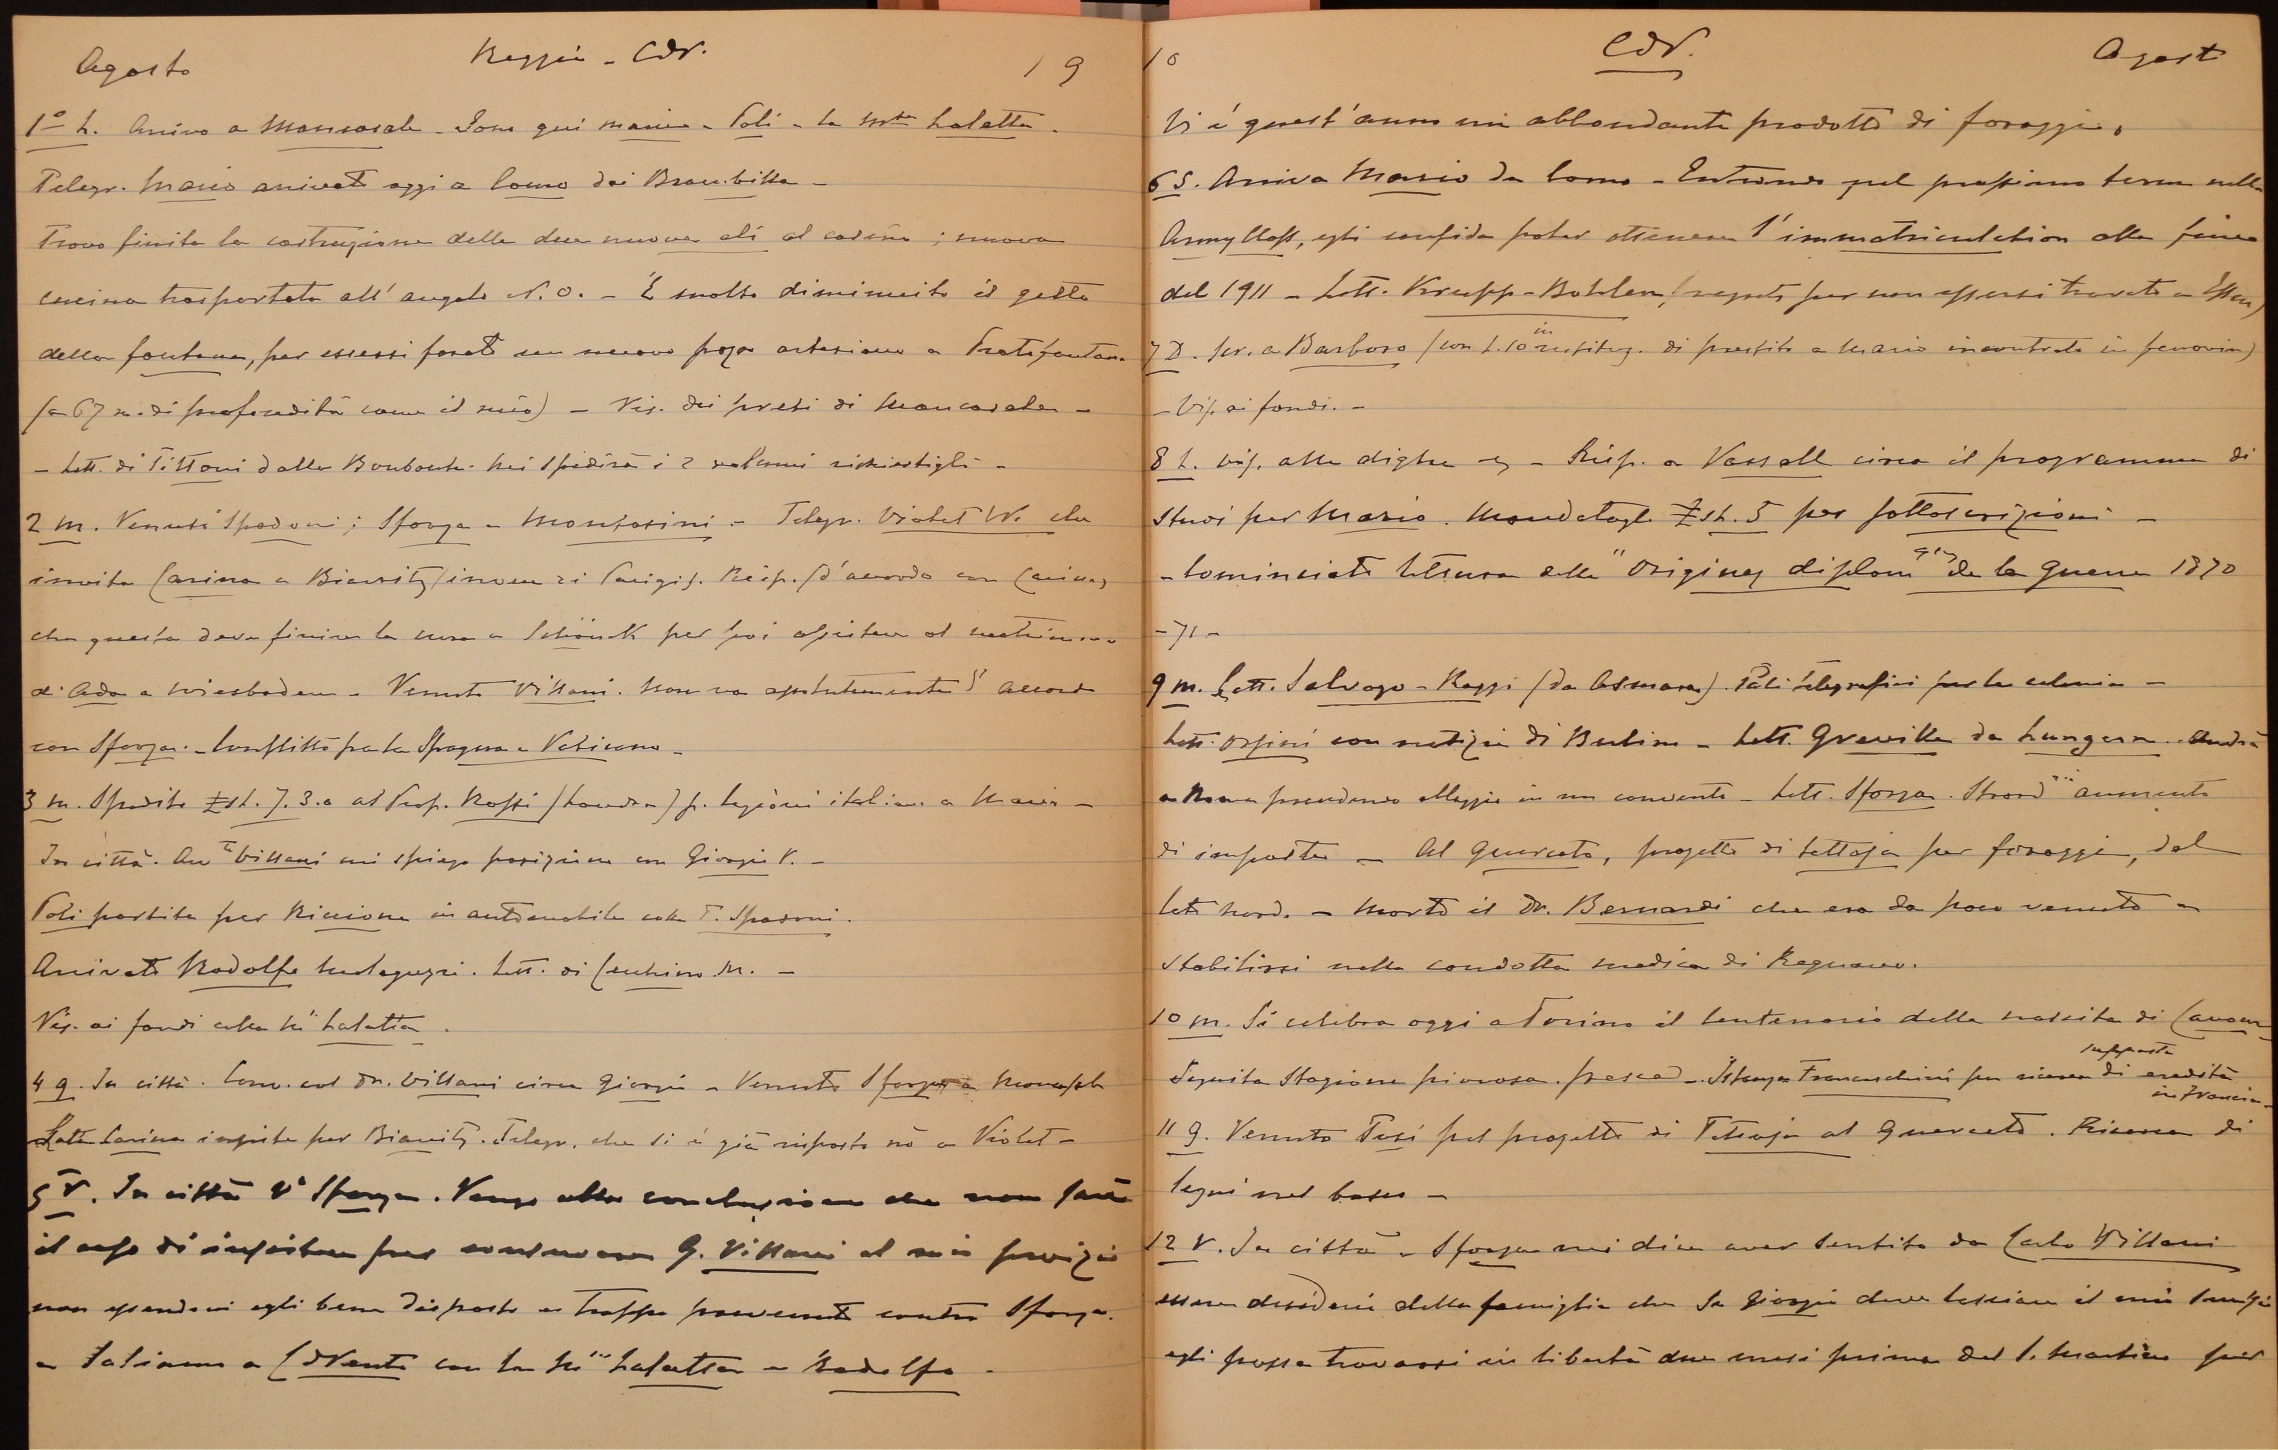 Agosto Reggio - CdV. 19
1º L. Arrivo a Mancasale - Sono qui Maria - Poli - la Mse Lalatta -
Telegr. Mario arrivato oggi a Como dai Brambilla -
Trovo finita la costruzione delle due nuove ali al casino ; nuova
cucina trasportata all' angolo N.O. - È molto diminuito il getto
della fontana, per essersi forato un nuovo pozzo artesiano a Pratofontana
(a 67 m. di profondità come il mio) - Vis. dei presi di Mancasale -
- Lett. di Tittoni dalla Bourboule. Mi spedirà i 2 volumi richiestigli -
2 M. Venuti Spadoni ; Sforza - Montorsini - Telegr. Violet W. che
invita Carina a Biarritz Risp. (d'accordo con Carina)
che questa deve finire la cura a Schönek per poi assistere al matrimonio
di Ada a Wiesbaden - Venuto Villani. Non va assolutamente d' accordo
con Sforza. - Conflitto fra la Spagna e Vaticano -
3 M. Spedito £ st. 7.3.0 al Prof. Rossi (Londra) p. lezioni italiano a Mario -
In città. Villani mi spiega posizione con Giorgio V. -
Poli partita per Riccione in automobile colla T. Spadoni.
Arrivato Rodolfo Malaguzzi. Lett. di Cecchino M. -
Vis. ai fondi colla Lalatta.
4 G. In città. Conv. col Dr. Villani circa Giorgio - Venuto Sforza a Mancasale
Lett. Carina insiste per Biarritz. Telegr. che si è già risposto nò a Violet -
5 V. In città Sforza. Vengo alla conclusione che non sarà
il caso di insistere per conservare G. Villani al mio servizio
non essendovi egli bene disposto e troppo prevenuto contro Sforza.
a CdVento con la Lalatta e Rodolfo -
10 CdV. Agosto
Vi è quest'anno un abbondante prodotto di foraggio.
6 S. Arriva Mario da Como - Entrando nel prossimo term nella
Army Class, egli confida poter ottenere l'immatriculation alla fine
del 1911 - Lett. Krupp-Bohlen (regrets per non essersi trovato a Essen)
7 D. Scr. a Barbaro (con L. 10 in restituz. di prestito a Mario incontrato in ferrovia)
- Vis. ai fondi. -
8 L. Vis. alle dighe - Risp. a Vassall circa il programma di
studi per Mario. Mandatogli £ st. 5 per sottoscrizioni -
- Cominciata lettura delle "Origines diplom ques de la Guerre 1870
- 71 -
9 M. Lett. Salvago-Raggi (da Asmara). Pali telegrafici per la colonia -
Lett. Orsini con notizie di Berlino - Lett. Greville da Lungern. Andrà
a Roma prendendo alloggio in un convento - Lett. Sforza. Straord. aumento
di imposte - Al Querceto, progetto di tettoja per foraggi, dal
lato nord. - Morto il Dr. Bernardi che era da poco venuto a
stabilirsi nella condotta medica di Regnano.
10 M. Si celebra oggi a Torino il Centenario della nascita di Cavour
Seguita stagione piovosa, fresca - Istanza Franceschini per ricerca di supposta eredità
in Francia -
11 G. Venuto Tusi pel progetto di Tettoja al Querceto. Ricerca di
legni nel bosco -
12 V. In città - Sforza mi dice aver sentito da Carlo Villani
essere desiderio della famiglia che se Giorgio deve lasciare il mio servizio
egli possa trovarsi in libertà due mesi prima del S. Martino per